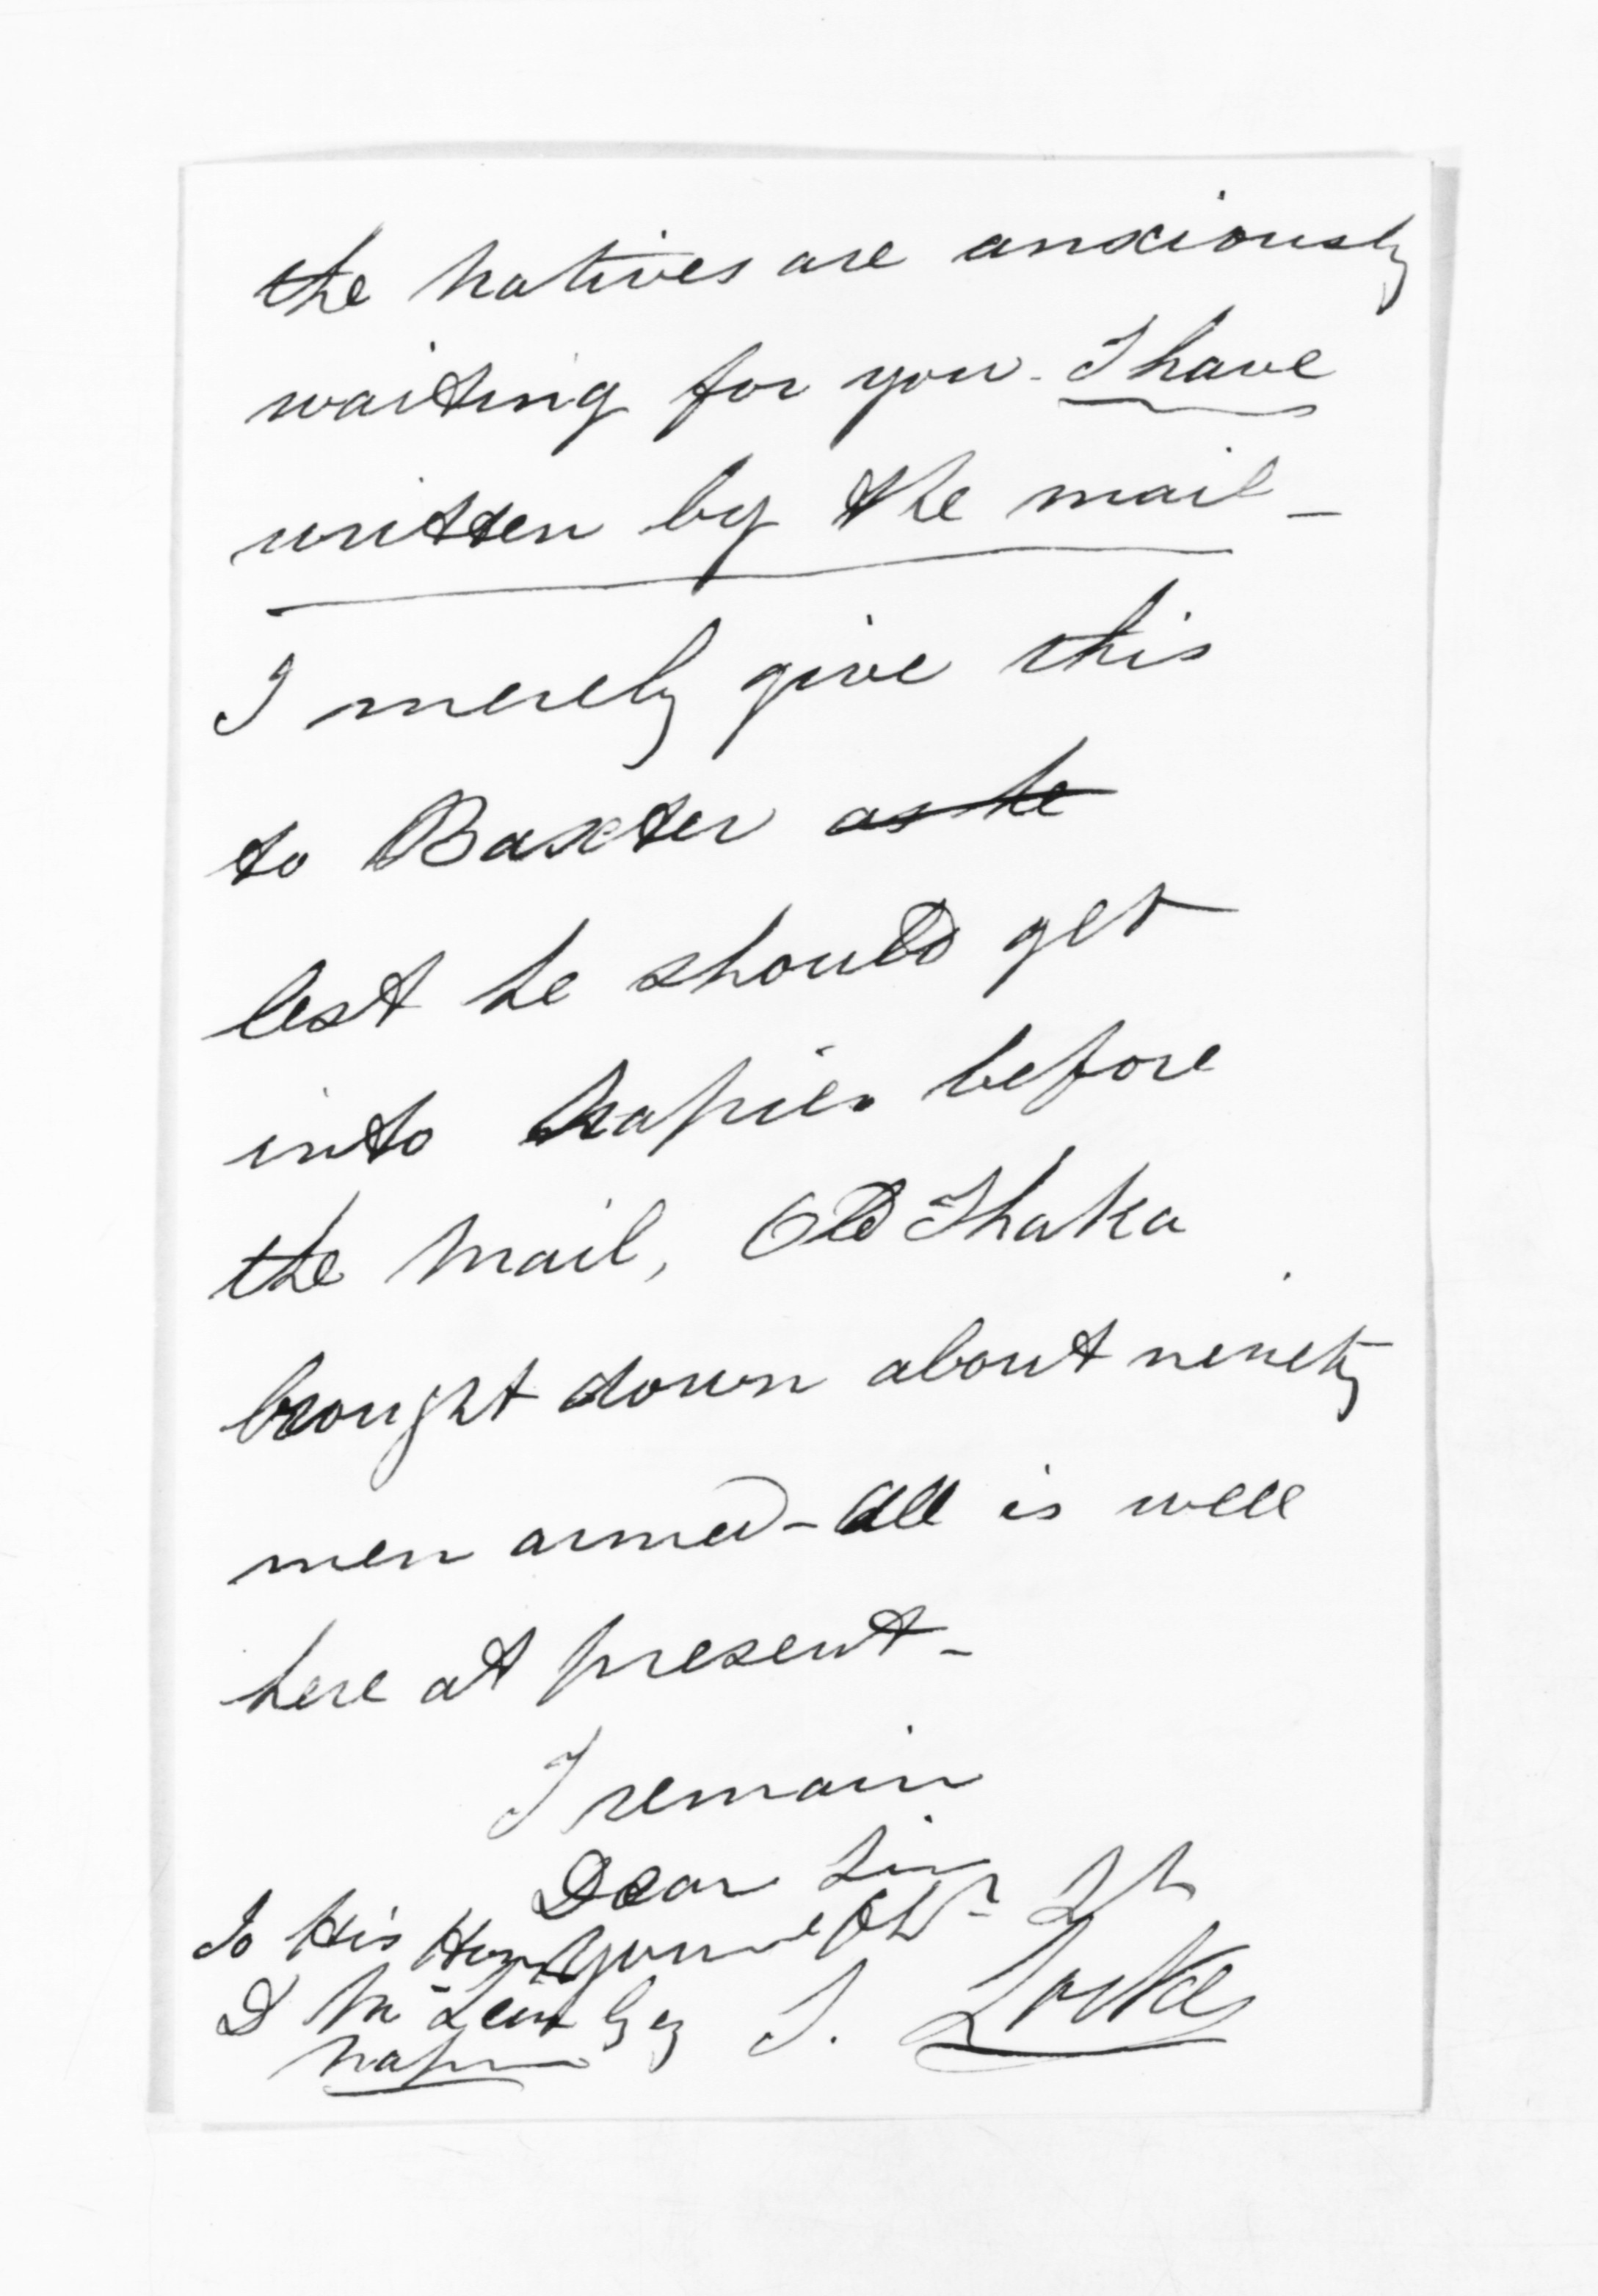 the natives are anxiously
waiting for you - I have
written by the mail -
I merely give this
to Baxter as he
lest he should get
into Napier before
the Mail, Old Ihaka
brought down about ninety
men armed - All is well
here at present -
I remain
Dear Sir
To His Honr Your
D McLean Esq S. Locke
Napier